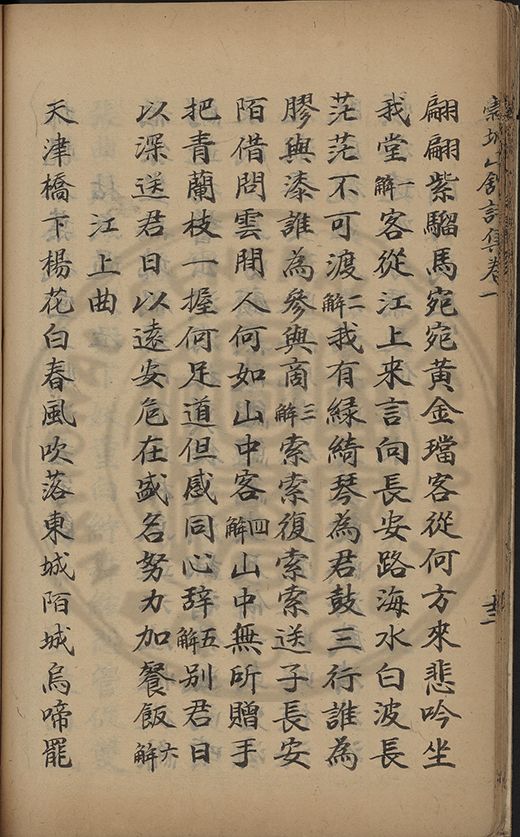 翩翩紫騮馬宛宛黃金璫客從何方來悲吟坐
我堂一解客從江上來言向長安路海水白波長
茫茫不可渡二解我有綠綺琴為君鼓三行誰為
膠與漆誰為參與商三解索索復索索送子長安
陌借問雲間人何如山中客四解山中無所贈手
把青蘭枝一握何足道但感同心辞五解別君日
以深送君日以遠安危在盛名努力加餐飯六解
江上曲
天津橋下楊花白春風吹落東城陌城烏啼罷